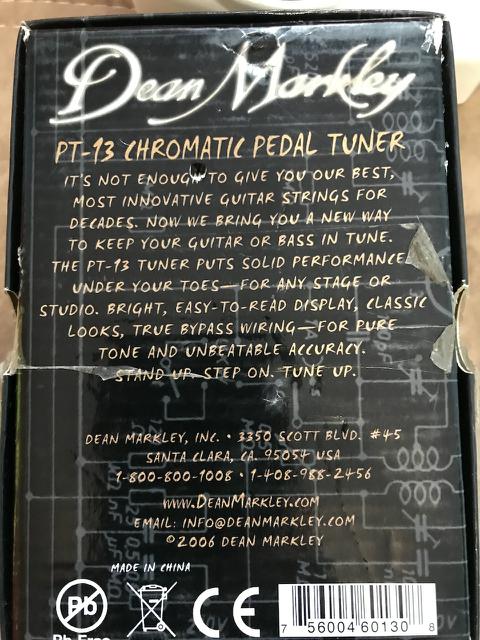 Dean Markley
PT-13 CHROMATIC PEDAL TUNER
IT'S NOT ENOUGH TO GIVE YOU OUR BEST,
MOST INNOVATIVE GUITAR STRINGS FOR
DECADES. NOW WE BRING YOU A NEW WAY
TO KEEP YOUR GUITAR OR BASS IN TUNE.
THE PT-13 TUNER PUTS SOLID PERFORMANCE
UNDER YOUR TOES—FOR ANY STAGE OR
STUDIO. BRIGHT, EASY-TO-READ DISPLAY, CLASSIC
LOOKS, TRUE BYPASS WIRING—FOR PURE
TONE AND UNBEATABLE ACCURACY.
STAND UP. STEP ON. TUNE UP.
DEAN MARKLEY, INC. • 3350 SCOTT BLVD. #45
SANTA CLARA, CA. 95054 USA
1-800-800-1008 • 1-408-988-2456
WWW.DEANMARKLEY.COM
EMAIL: INFO@DEANMARKLEY.COM
©2006 DEAN MARKLEY
MADE IN CHINA
Pb
CE
Pb Free
7 56004 60130 8